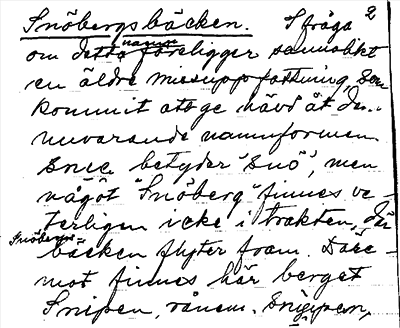 Snöbergsbäcken. I fråga 2
om detta namn föreligger sannolikt
en äldre missuppfattning, som
kommit att ge hävd åt den
nuvarande namnformen.
Snee betyder "snö", men
något "Snöberg" finnes ve-
terligen icke i trakten, där
Snöbergs-
bäcken flyter fram. Däre-
mot finnes här berget
Snipen, vånem.